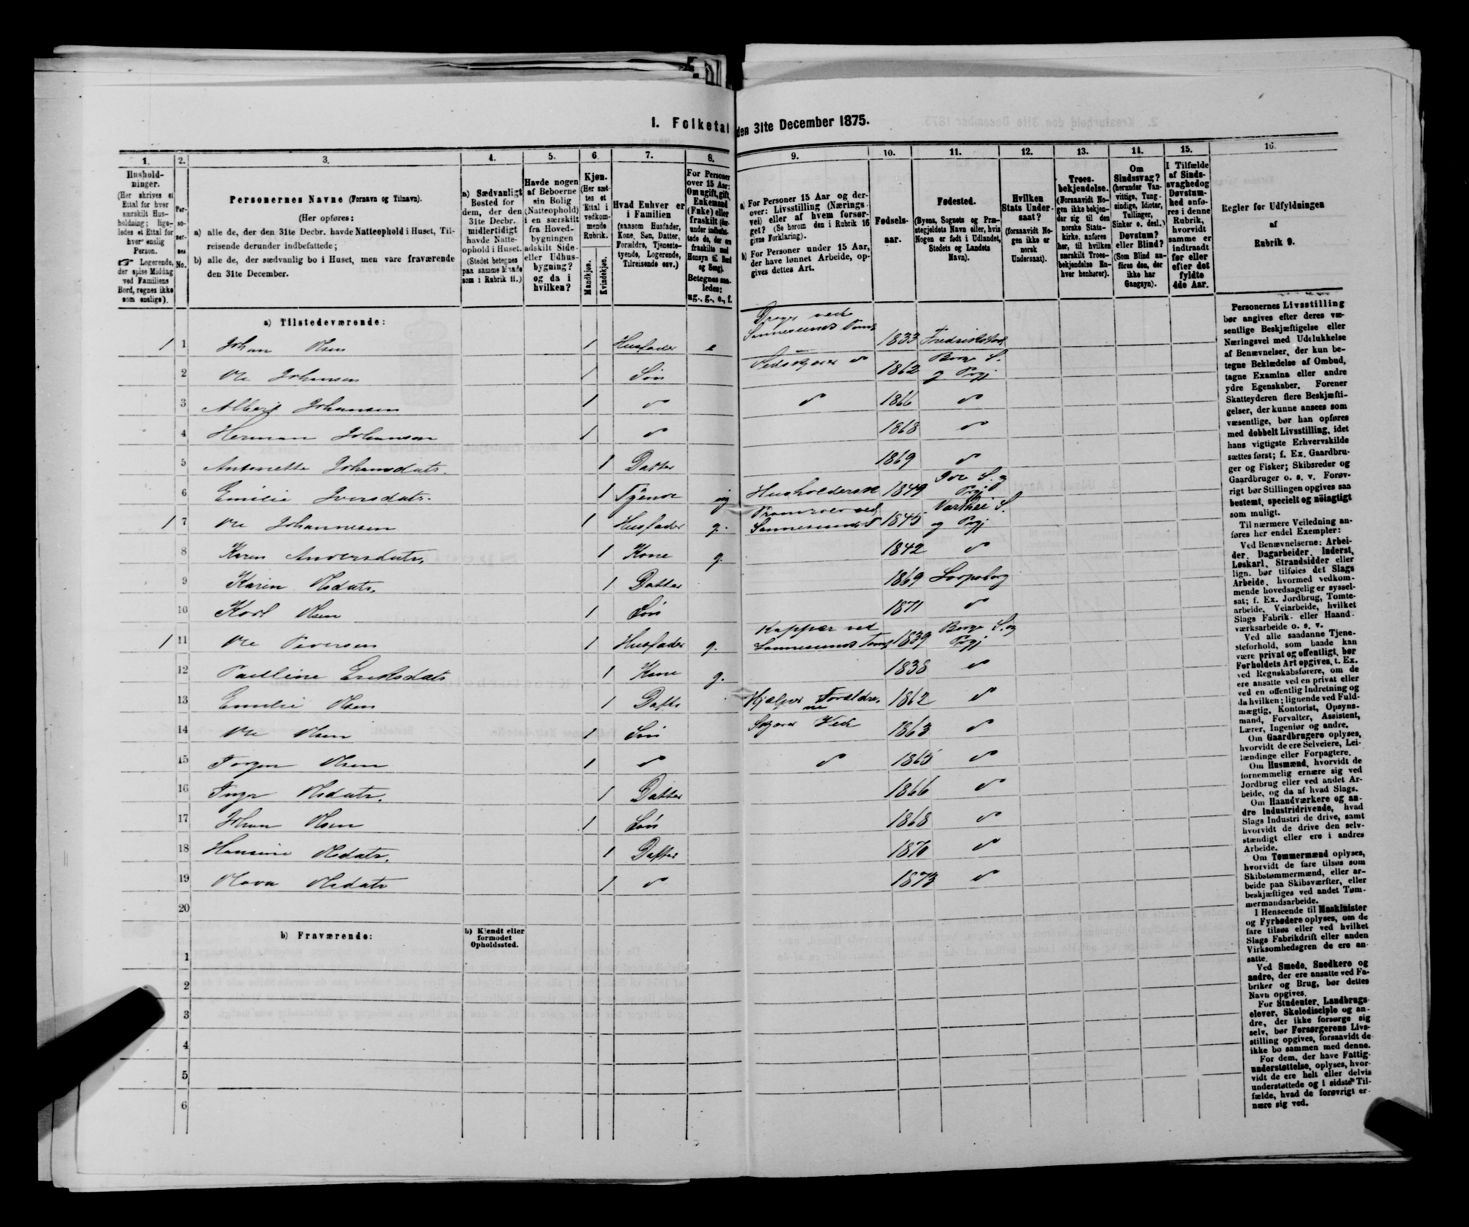 I. Folketal den 31te December 1875.
1. 2. 3. 4. 5. 6. 7. 8. 9. 10. 11. 12. 13. 14. 15. 16.
Husholdninger.
(Her skrives et Ettal for hver særskilt Husholdning; ligeledes et Ettal for hver enslig Person.
☞ Logerende, der spise Middag ved Familiens Bord, regnes ikke som enslige).
Personernes No.
Personernes Navne (Fornavn og Tilnavn).
(Her opføres:
a) alle de, der den 31te Decbr. havde Natteophold i Huset, Tilreisende derunder indbefattede;
b) alle de, der sædvanlig bo i Huset, men vare fraværende den 31te December.
a) Sædvanligt Bosted for dem, der den 31te Decbr. midlertidigt havde Natteophold i Huset. (Stedet betegnes paa samme Maade som i Rubrik 11.)
Havde nogen af Beboerne sin Bolig (Natteophold) i en særskilt fra Hovedbygningen adskilt Side- eller Udhusbygning? og da i hvilken?
Kjøn. (Her sættes et Ettal i vedkommende Rubrik.
Mandkjøn. Kvindekjøn.
Hvad Enhver er i Familien
(saasom Husfader, Kone, Søn, Datter, Forældre, Tjenestetyende, Logerende, Tilreisende osv.)
For Personer over 15 Aar: Om ugift, gift Enkemand (Enke) eller fraskilt
Betegnes saaledes: ug., g., e., f.
a) For Personer 15 Aar og derover: Livsstilling (Næringsvei) eller af hvem forsørget? (Se herom den i Rubrik 16 givne Forklaring).
b) For Personer under 15 Aar, der have lønnet Arbeide, opgives dettes Art.
Fødselsaar.
Fødested.
(Byens, Sognets og Præstegjeldets Navn eller, hvis Nogen er født i Udlandet, Stedets og Landets Navn).
Hvilken Stats Undersaat?
(forsaavidt Nogen ikke er norsk Undersaat).
Troesbekjendelse.
(Forsaavidt Nogen ikke bekjender sig til den norske Statskirke, anføres her, til hvilken særskilt Troesbekjendelse Enhver henhører).
Om Sindssvag? (herunder Vanvittige, Tungsindige, Idioter, Tullinger, Sinker o. desl.). Døvstum? eller Blind? (Som Blind anføres den, der ikke har Gangsyn).
I Tilfælde af Sindssvaghed og Døvstumhed anføres i denne Rubrik, hvorvidt samme er indtraadt før eller efter det fyldte 4de Aar.
Regler for Udfyldningen af Rubrik 9.
a) Tilstedeværende:
1 1 Johan Olsen 1 Husfader e Drager ved Sannesunds Tomt 1833 Fredrikstad
2 Ole Johansen 1 Søn Vedskjærer 1862 Borge S. og Prgj
3 Albert Johansen 1 do do 1866 do
4 Herman Johansen 1 do 1868 do
5 Antonette Johansdatr. 1 Datter 1869 do
6 Emilie Iversdatr. 1 Tjener ug Husholderske 1849 S. og Prgj
1 7 Ole Johannesen 1 Husfader g. Sannesunds T 1845 Varteig S. og Prgj
8 Karen Andersdatr. 1 Kone g. 1842 do
9 Karin Olsdatr. 1 Datter 1869 Sarpsborg
10 Karl Olsen 1 Søn 1871 do
1 11 Ole Pedersen 1 Husfader g. Kapper ved Sannesunds Tomt 1839 Borge S. og Prgj
12 Pauline Eriksdatr 1 Kone g. 1838 do
13 Emilie Olsen 1 Datter Hjælper Forældre 1862 do
14 Ole Olsen 1 Søn Skjærer Ved 1863 do
15 Torger Olsen 1 do do 1865 do
16 Inger Olsdatr. 1 Datter 1866 do
17 Johan Olsen 1 Søn 1868 do
18 Hansine Olsdatr. 1 Datter 1870 do
19 Olava Olsdatr 1 do 1873 do
20
b) Fraværende:
b) Kjendt eller formodet Opholdssted.
1
2
3
4
5
6
Personernes Livsstilling bør angives efter deres væsentlige Beskjæftigelse eller Næringsvei med Udelukkelse af Benævnelser, der kun betegne Beklædelse af Ombud, tagne Examina eller andre ydre Egenskaber. Forener Skatteyderen flere Beskjæftigelser, der kunne ansees som væsentlige, bør han opføres med dobbelt Livsstilling, idet hans vigtigste Erhvervskilde sættes først; f. Ex. Gaardbruger og Fisker; Skibsreder og Gaardbruger o. s. v. Forøvrigt bør Stillingen opgives saa bestemt, specielt og nøiagtigt som muligt.
Til nærmere Veiledning anføres her endel Exempler:
Ved Benævnelserne: Arbeider, Dagarbeider, Inderst, Løskarl, Strandsidder eller lign. bør tilføies det Slags Arbeide, hvormed vedkommende hovedsagelig er sysselsat; f. Ex. Jordbrug, Tomtearbeide, Veiarbeide, hvilket Slags Fabrik- eller Haandværksarbeide o. s. v.
Ved alle saadanne Tjenesteforhold, som baade kan være privat og offentligt, bør Forholdets Art opgives, t. Ex. ved Regnskabsførere, om de ere ansatte ved en privat eller ved en offentlig Indretning og da hvilken; lignende ved Fuldmægtig, Kontorist, Opsynsmand, Forvalter, Assistent, Lærer, Ingeniør og andre.
Om Gaardbrugere oplyses, hvorvidt de ere Selveiere, Leilændinge eller Forpagtere.
Om Husmænd, hvorvidt de fornemmelig ernære sig ved Jordbrug eller ved andet Arbeide, og da af hvad Slags.
Om Haandværkere og andre Industridrivende, hvad Slags Industri de drive, samt hvorvidt de drive den selvstændigt eller ere i andres Arbeide.
Om Tømmermænd oplyses, hvorvidt de fare tilsøs som Skibstømmermænd, eller arbeide paa Skibsværfter, eller beskjæftiges ved andet Tømmermandsarbeide.
I Henseende til Maskinister og Fyrbødere oplyses, om de fare tilsøs eller ved hvilket Slags Fabrikdrift eller anden Virksomhedsgren de ere ansatte.
Ved Smede, Snedkere og andre, der ere ansatte ved Fabriker og Brug, bør dettes Navn opgives.
For Studenter, Landbrugselever, Skoledisciple og andre, der ikke forsørge sig selv, bør Forsørgerens Livsstilling opgives, forsaavidt de ikke bo sammen med denne.
For dem, der have Fattigunderstøttelse, oplyses, hvorvidt de ere helt eller delvis understøttede og i sidste Tilfælde, hvad de forøvrigt ernære sig ved.